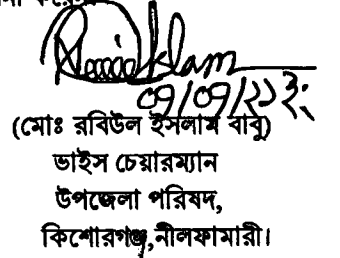 (মোঃ রবিউল ইসলাম বাবু)
ভাইস চেয়ারম্যান
উপজেলা পরিষদ,
কিশোরগঞ্জ,নীলফামারী।